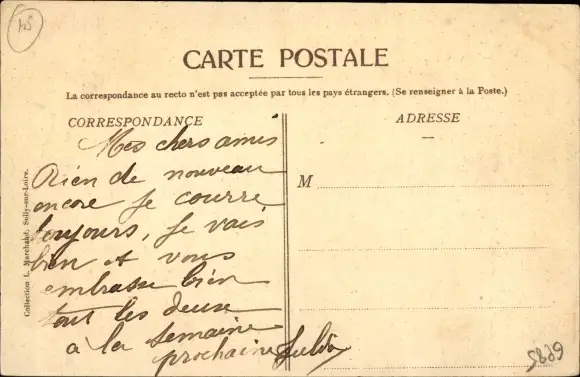 CARTE POSTALE
La correspondance au recto n'est pas acceptée par tous les pays étrangers. (Se renseigner à la Poste.)
CORRESPONDANCE
Mes chers amis
Rien de nouveau
encore je courre
toujours, je vais
bien et vous
embrasse bien
tout les deuse
à la semaine
prochaine
ADRESSE
M
Collection L. Marchand, Sully-sur-Loire.